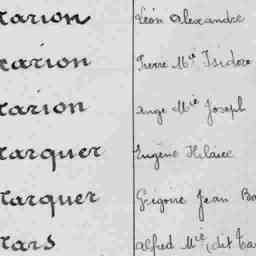 tarion Léon Alexandre
tarion Pierre Mie Isidore
tarion Ange Mie Joseph
tarquer Eugène Hilaire
tarquer Grégoire Jean Ba
tars Alfred Mie (dit